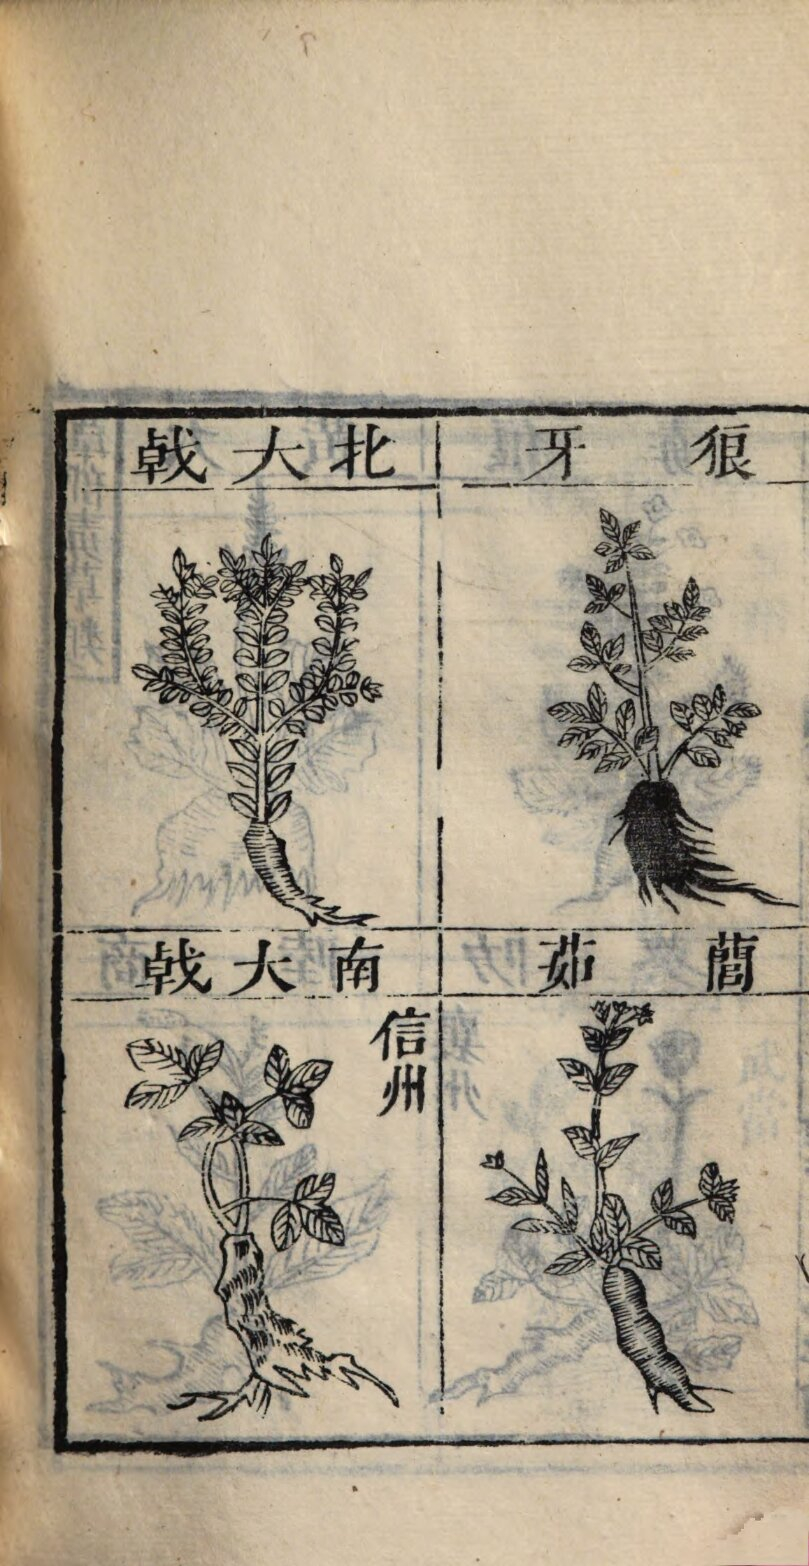 狼牙
北大戟
䕡茹
南大戟
信州